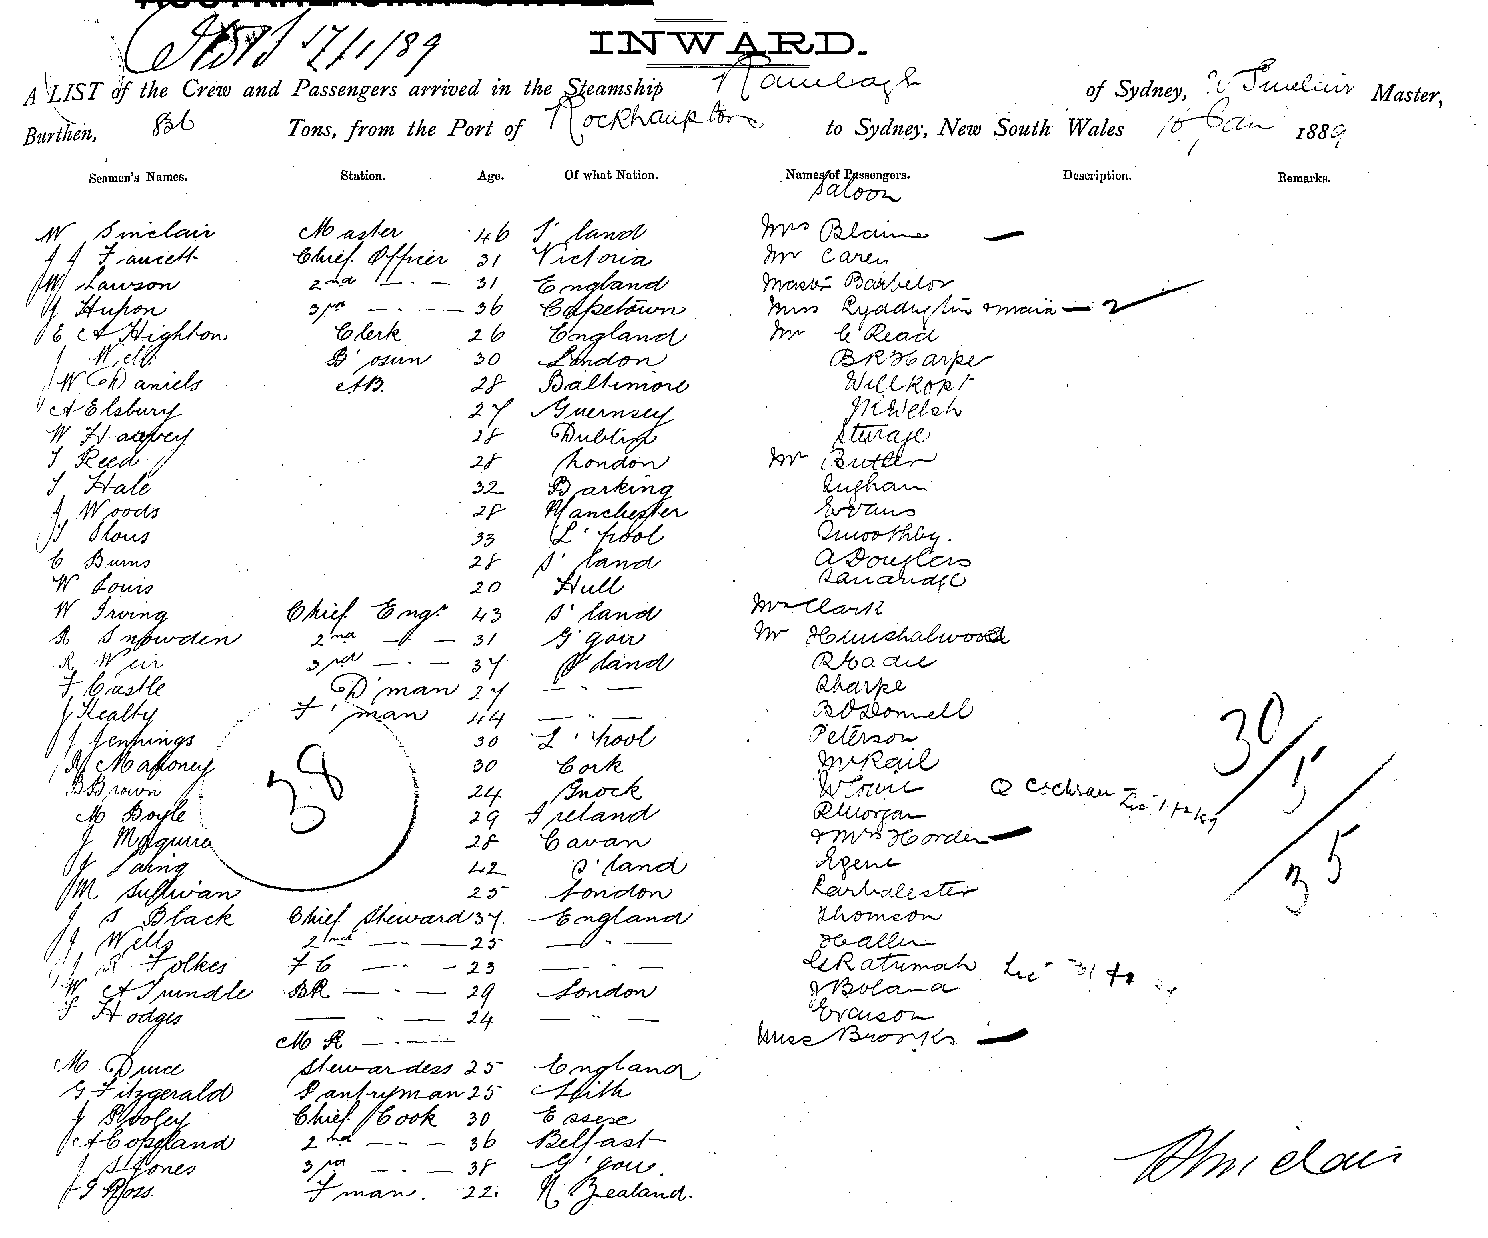 17/1/89
INWARD.
A LIST of the Crew and Passengers arrived in the Steamship Ranelagh of Sydney, W Sinclair Master,
Burthen, Tons, from the Port of Rockhampton to Sydney, New South Wales 16 Jan 1889
Seamen's Names. Station. Age. Of what Nation. Names of Passengers. Description. Remarks.
Saloon
W Sinclair Master 46 S'land Mrs Blaine —
J J Faucett Chief Officer 31 Victoria Mr Carey
W Lawson 2nd — " — 31 England Master Barbelor
J Hupon 3rd — " — 36 Capetown Miss & maid — 2
E A Highton Clerk 26 England Mr C Read
J B'osun 30 London B R Harpe
W Daniels AB. 28 Baltimore Willkopf
A Elsbury 27 Guernsey Welsh
W Harvey 28 Dublin Sturage
T Reed 28 London Mr Butler
T Hale 32 Barking Ingham
J Woods 28 Manchester Evans
33 L'pool Smoothby.
C Burns 28 S'land A Douglass
W Louis 20 Hull
W Irving Chief Engr 43 S'land Clark
R Snowden 2nd — " — 31 G'gow Mr Henshalwood
R Weir 3rd — " — 37 S'land R Eadie
F Castle D'man 27 — " — Sharpe
J Kealty F'man 44 — " — B O'Donnell
J Jennings 30 L'pool Peterson
Mahoney 30 Cork McKail
B Brown 24 Gnock Q Cochran
M Boyle 29 Ireland R Morgan
J Maguire 28 Cavan Mrs Horden —
J Laing 42 S'land Egene
M Sullivan 25 London Carbalester
J S Black Chief Steward 37 England Thomson
J Wells 2nd — " — 25 — " — Haller
R Folkes F C — " — 23 — " —
W A Trindle BR — " — 29 London J Boland
T Hodges — " — 24 — " — Evanson
M R — " — Miss Brooks —
M Stewardess 25 England
G Fitzgerald Pantryman 25 Leith
J Pooley Chief Cook 30 Essex
A Copeland 2nd — " — 36 Belfast
J S Jones 3rd — " — 38 G'gow.
J G Ross F'man. 22. N Zealand.
38
30
5
35
Sinclair